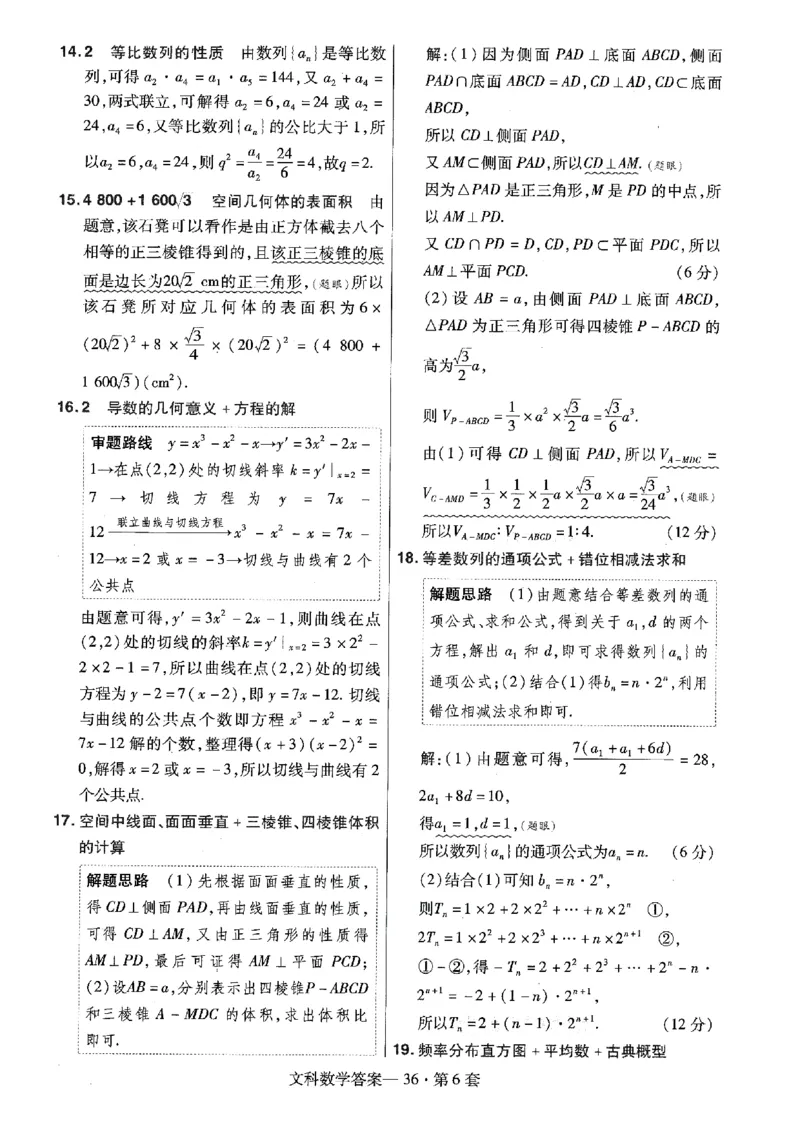 14.2 等比数列的性质 由数列{aₙ}是等比数
列,可得 a₂·a₄=a₁·a₅=144,又 a₂+a₄=
30,两式联立,可解得 a₂=6,a₄=24 或 a₂=
24,a₄=6,又等比数列{aₙ}的公比大于1,所
以a₂=6,a₄=24,则 q²=a₄/a₂=24/6=4,故q=2.
15.4 800+1 600√3 空间几何体的表面积 由
题意,该石凳可以看作是由正方体截去八个
相等的正三棱锥得到的,且该正三棱锥的底
面是边长为20√2 cm的正三角形,(题眼)所以
该石凳所对应几何体的表面积为 6×
(20√2)²+8×√3/4×(20√2)²=(4 800+
1 600√3)(cm²).
16.2 导数的几何意义+方程的解
审题路线 y=x³-x²-x→y′=3x²-2x-
1→在点(2,2)处的切线斜率 k=y′|ₓ₌₂=
7 → 切线方程为 y=7x-
12 联立曲线与切线方程→x³-x²-x=7x-
12→x=2 或 x=-3→切线与曲线有2个
公共点
由题意可得,y′=3x²-2x-1,则曲线在点
(2,2)处的切线的斜率k=y′|ₓ₌₂=3×2²-
2×2-1=7,所以曲线在点(2,2)处的切线
方程为y-2=7(x-2),即y=7x-12. 切线
与曲线的公共点个数即方程 x³-x²-x=
7x-12 解的个数,整理得(x+3)(x-2)²=
0,解得x=2或x=-3,所以切线与曲线有2
个公共点.
17.空间中线面、面面垂直+三棱锥、四棱锥体积
的计算
解题思路 (1)先根据面面垂直的性质,
得CD⊥侧面PAD,再由线面垂直的性质,
可得 CD⊥AM,又由正三角形的性质得
AM⊥PD,最后可证得 AM⊥平面 PCD;
(2)设AB=a,分别表示出四棱锥P-ABCD
和三棱锥 A-MDC 的体积,求出体积比
即可.
解:(1)因为侧面 PAD⊥底面 ABCD,侧面
PAD∩底面 ABCD=AD,CD⊥AD,CD⊂底面
ABCD,
所以 CD⊥侧面PAD,
又AM⊂侧面PAD,所以CD⊥AM.(题眼)
因为△PAD是正三角形,M是PD的中点,所
以AM⊥PD.
又 CD∩PD=D,CD,PD⊂平面 PDC,所以
AM⊥平面PCD. (6分)
(2)设 AB=a,由侧面 PAD⊥底面 ABCD,
△PAD 为正三角形可得四棱锥 P-ABCD 的
高为√3/2 a,
则 V_{P-ABCD}=1/3×a²×√3/2 a=√3/6 a³.
由(1)可得 CD⊥侧面 PAD,所以 V_{A-MDC}=
V_{C-AMD}=1/3×1/2×1/2 a×√3/2 a×a=√3/24 a³,(题眼)
所以V_{A-MDC}:V_{P-ABCD}=1:4. (12分)
18.等差数列的通项公式+错位相减法求和
解题思路 (1)由题意结合等差数列的通
项公式、求和公式,得到关于 a₁,d 的两个
方程,解出 a₁ 和 d,即可求得数列{aₙ}的
通项公式;(2)结合(1)得bₙ=n·2ⁿ,利用
错位相减法求和即可.
解:(1)由题意可得,7(a₁+a₁+6d)/2=28,
2a₁+8d=10,
得a₁=1,d=1,(题眼)
所以数列{aₙ}的通项公式为aₙ=n. (6分)
(2)结合(1)可知 bₙ=n·2ⁿ,
则Tₙ=1×2+2×2²+…+n×2ⁿ ①,
2Tₙ=1×2²+2×2³+…+n×2ⁿ⁺¹ ②,
①-②,得-Tₙ=2+2²+2³+…+2ⁿ-n·
2ⁿ⁺¹=-2+(1-n)·2ⁿ⁺¹,
所以Tₙ=2+(n-1)·2ⁿ⁺¹. (12分)
19.频率分布直方图+平均数+古典概型
文科数学答案—36·第6套